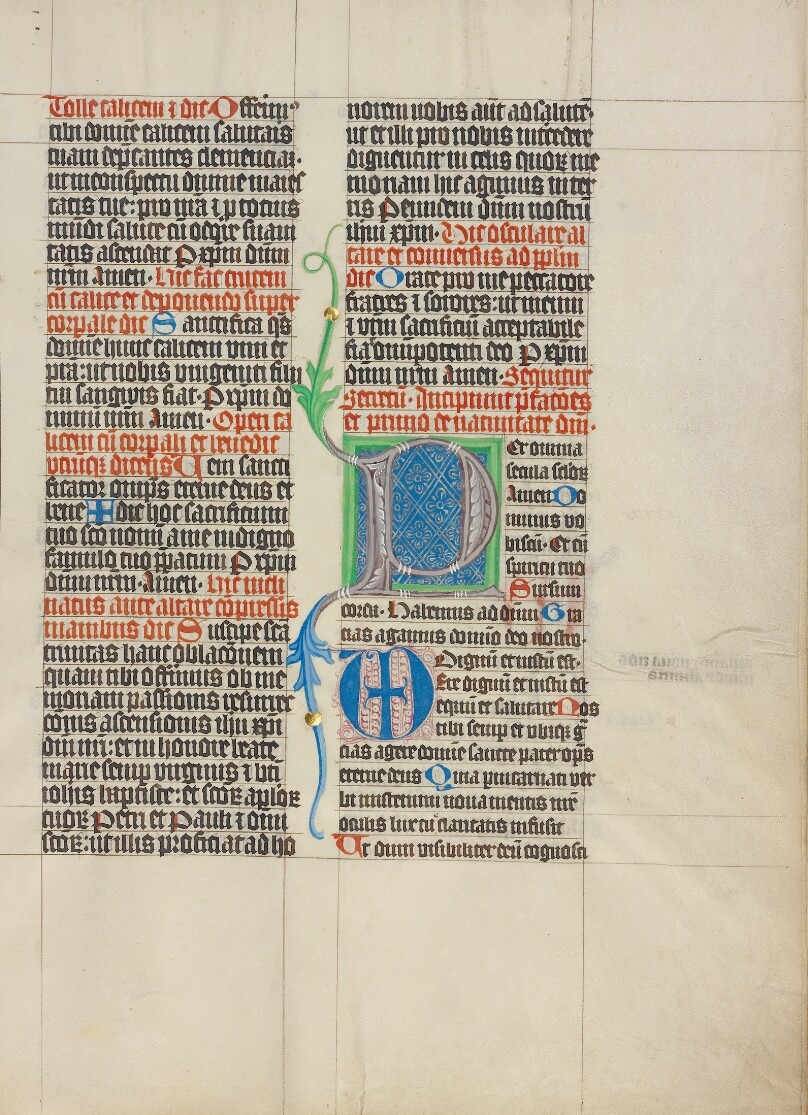 Tolle calicem ⁊ dic Offerim⁹
tibi domīe calicem salutaris
tuam dep̄cantes clemenciaꝫ·
ut in conspectu diuine maies
tatis tue: pro nr̄a ⁊ ꝑ totius
mūdi salute cū odore suaui
tatis ascendat P xp̄m dūm
nrm̄ Amen· Hic fac crucem
cū calice et deponendo super
corꝑale dic Sanctifica q̄s
domīe hunc calicem vini et
p̄ra: ut nobis unigeniti filii
tui sanguis fiat· P xp̄m do
minū nrm̄ Amen· Operi ca
licem cū corꝑali et benedic
utrūqꝫ dicens Veni sancti
ficator omp̄s eterne deus et
bene ✠ dic hoc sacrificium
tuo sc̄o nomī a me indigno
famulo tuo p̄paratum P xp̄m
dūm nrm̄· Amen· Hic incli
natus ante altare cōpressis
manibus dic Suscipe sc̄a
trinitas hanc oblacōnem
quam tibi offerimus ob me
moriam passionis resurrec
cōnis ascensionis ih̄u xp̄i
dn̄i nr̄i: et in honore beate
marie semꝑ virginis ⁊ bt̄i
ioh̄is baptiste: et sc̄oꝝ ap̄loꝝ
tuoꝝ Petri et Pauli ⁊ om̄i
sc̄oꝝ: ut illis proficiat ad ho
norem nobis aūt ad salutē·
ut et illi pro nobis intercedere
dignentur in celis quoꝝ me
moriam hic agimus in ter
ris P eundem dūm nostrū
ih̄m xp̄m· Hic osculare al
tare et conuersus ad pp̄lm
dic Orate pro me peccatore
fratres ⁊ sorores: ut meum
⁊ vr̄m sacrificiū acceptabile
fiat om̄ipotenti deo P xp̄m
dūm nrm̄ Amen· Sequitur
Secretū· Incipiunt p̄facōes
et primo de natiuitate dn̄i·
P Er omnia
secula sc̄loꝝ
Amen Do
minus vo
biscū· Et cū
spiritu tuo
Sursum
corda· Habemus ad dūm Gra
cias agamus domīo deo nostro·
Dignū et iustū est·
Vere dignū et iustū est
equū et salutare Nos
tibi semꝑ et ubiqꝫ gr̄a
cias agere domīe sancte pater op̄s
eterne deus Quia p incarnati ver
bi misterium noua mentis nr̄e
oculis lux tue claritatis infulsit
Ut dum visibiliter deū cognosci